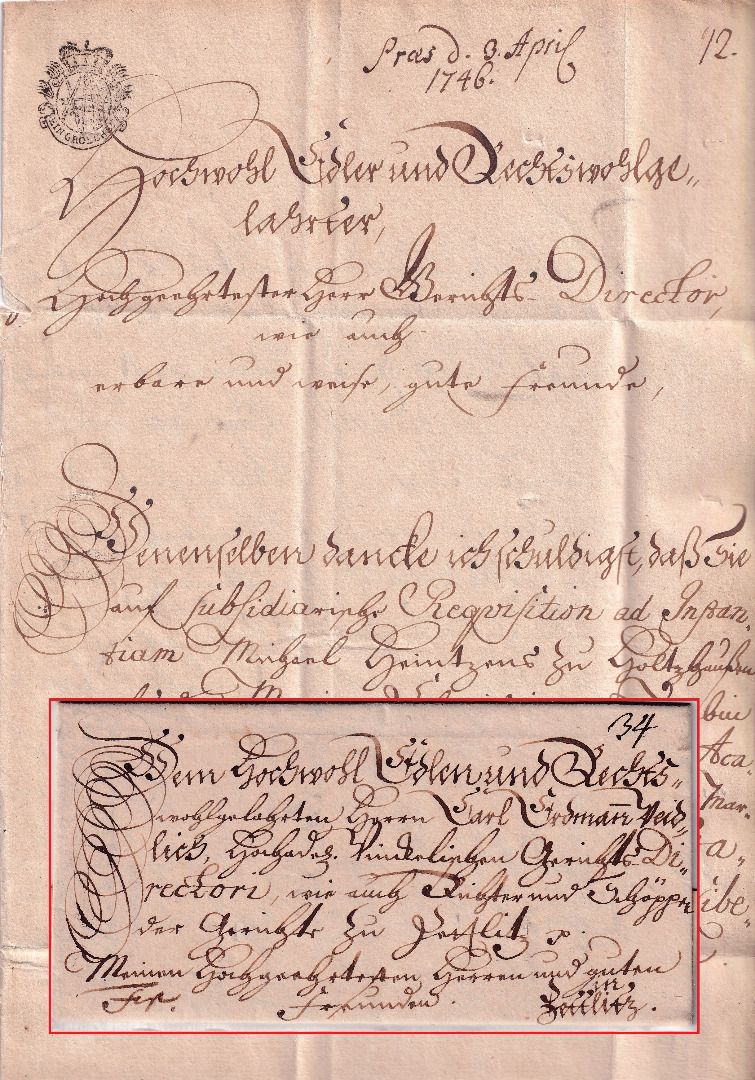 Præs d. 3. April
1746.
12.
EIN GROSCH
Hochwohl Edler und Rechtswohlge„
lahrter,
Hochgeehrtester Herr Gerichts-Director,
wie auch
erbare und weise, gute Freunde,
Denenselben dancke ich schuldigst, daß Sie
auf subsidiarische Reqvisition ad Instan„
tiam Michael Heintzens zu Holtzhaußen
bin
Aca
Mar„
34
Dem Hochwohl Edlen und Rechts„
wohlgelahrten Herrn Carl Erdmann
lich, Hochadel. Gerichts-Di„
rectori, wie auch Richter und Schöppen
der Gerichte zu
Meinen Hochgeehrtesten Herren und guten
Fr. Freunden.
in